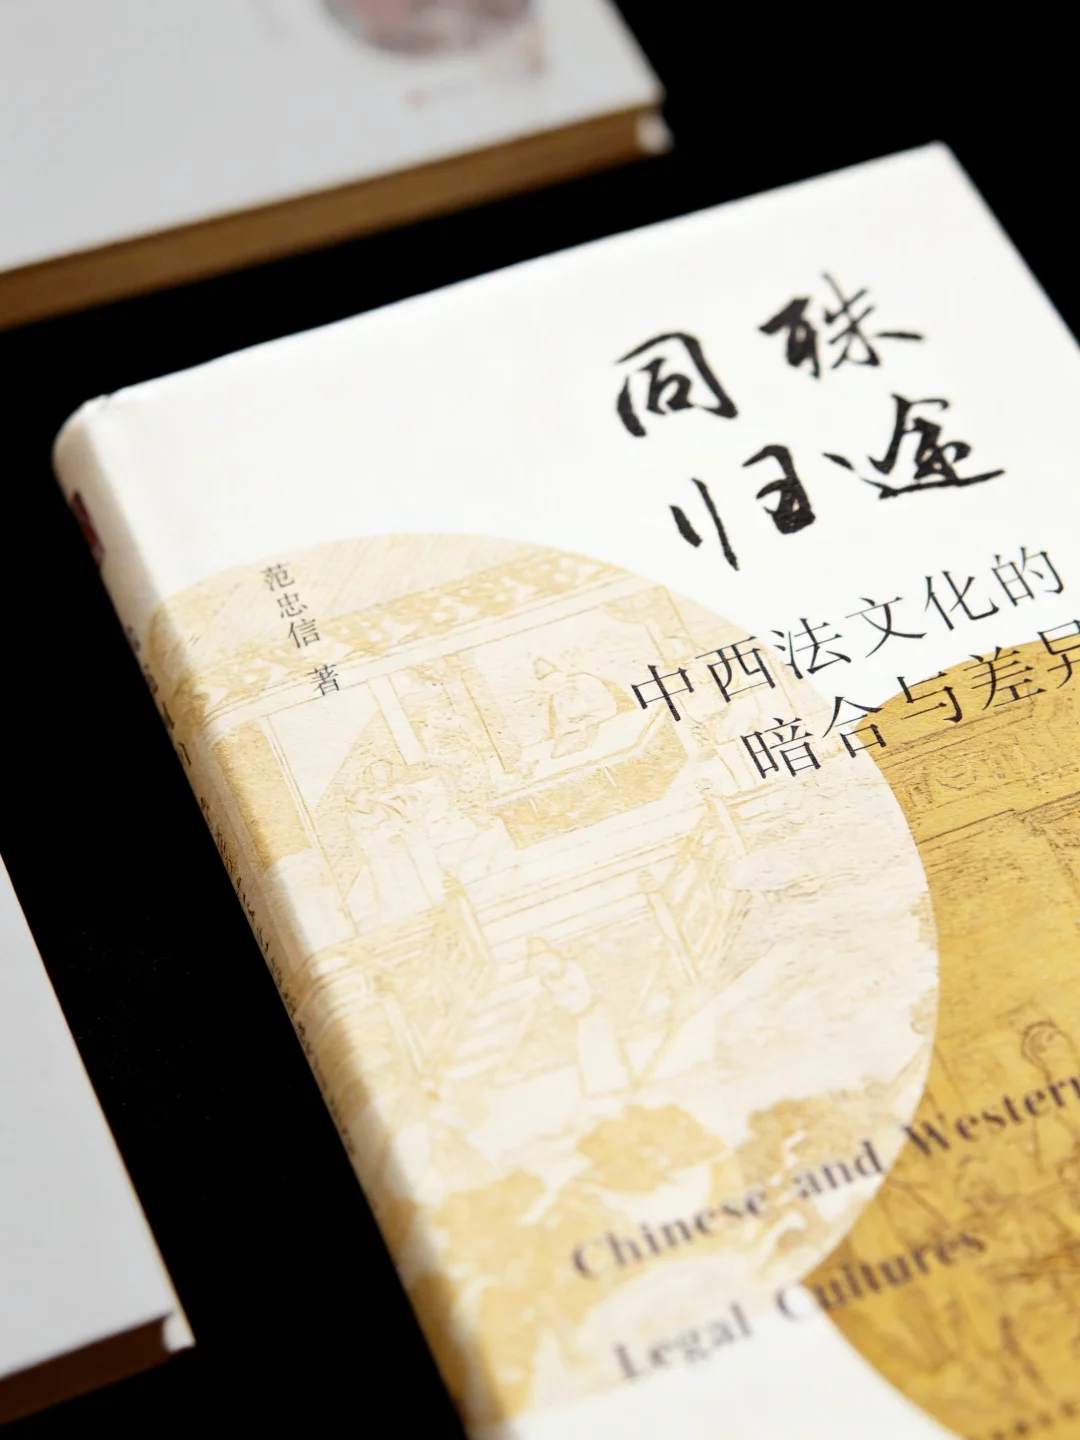 殊途
同归
范忠信 著
中西法文化的
暗合与差异
Chinese and Western
Legal Cultures